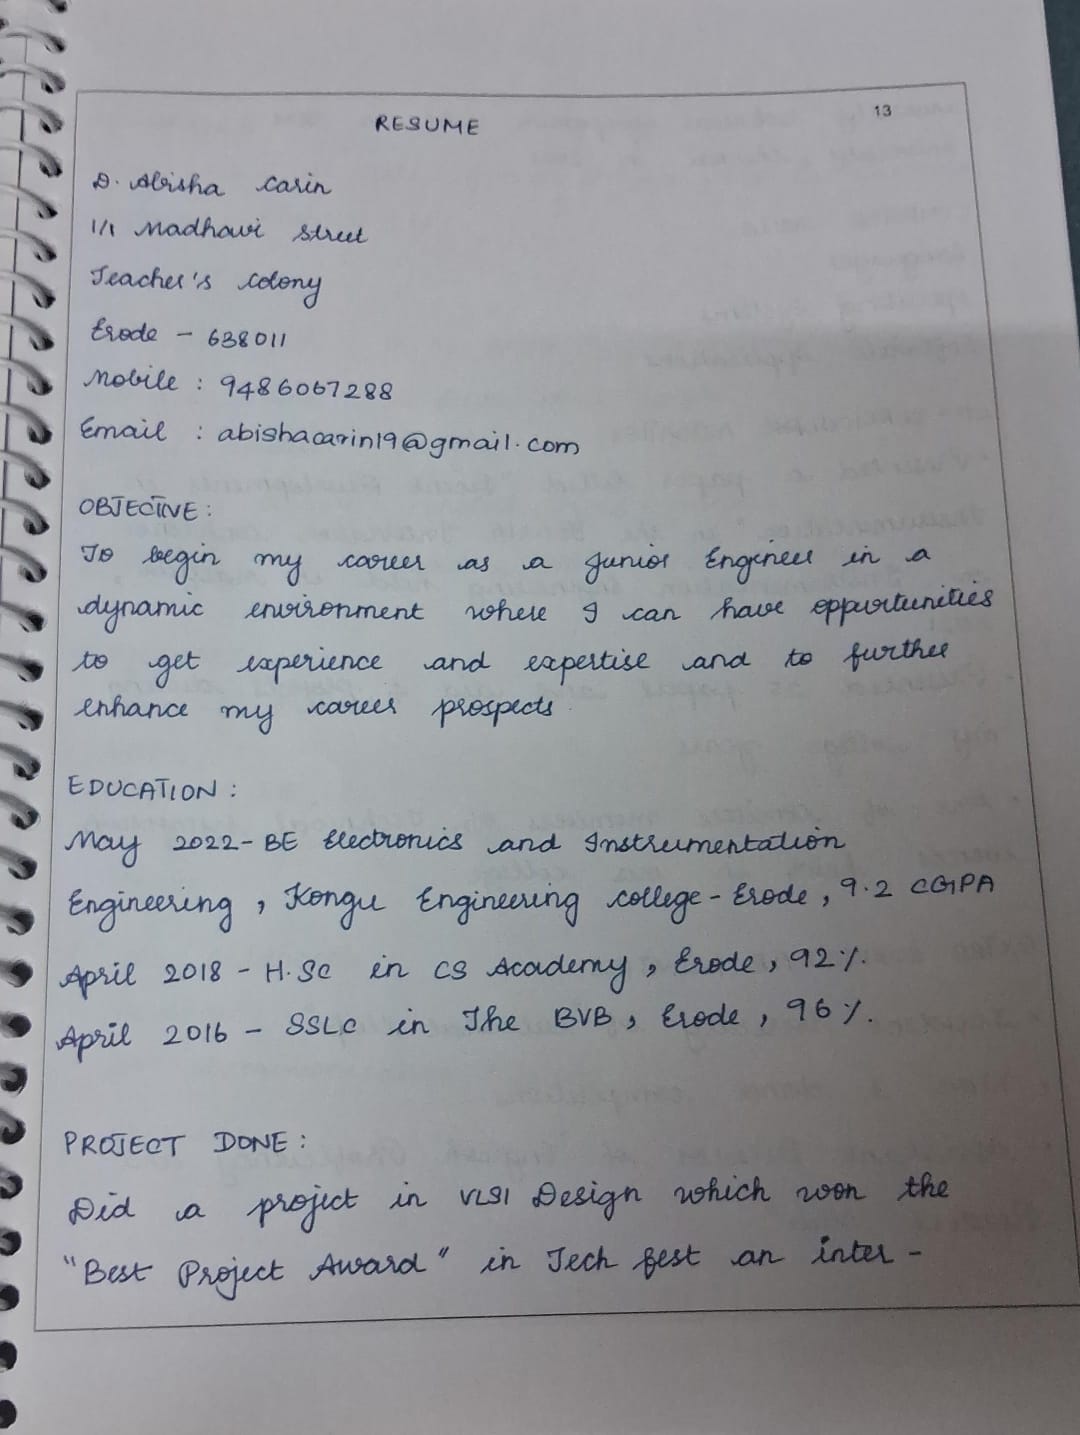 13
RESUME
D. Abisha Carin
1/1 Madhavi Street
Teacher's Colony
Erode - 638011
Mobile : 9486067288
Email : abishacarin19@gmail.com
OBJECTIVE :
To begin my career as a Junior Engineer in a
dynamic environment where I can have opportunities
to get experience and expertise and to further
enhance my career prospects
EDUCATION :
May 2022 - BE Electronics and Instrumentation
Engineering , Kongu Engineering college - Erode , 9.2 CGPA
April 2018 - H.Sc in CS Academy , Erode , 92%.
April 2016 - SSLC in The BVB , Erode , 96%.
PROJECT DONE :
Did a project in VLSI Design which won the
"Best Project Award" in Tech fest an inter -